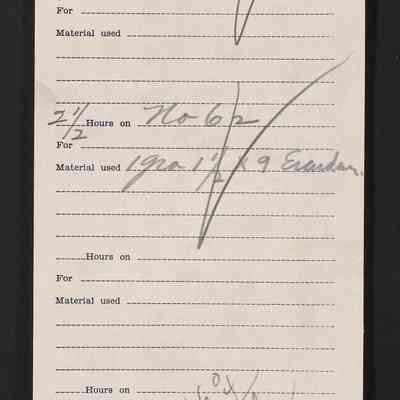 For
Material used
2 1/2 Hours on No 62
For
Material used 1 gro 1 1/2 x 9
Hours on
For
Material used
Hours on